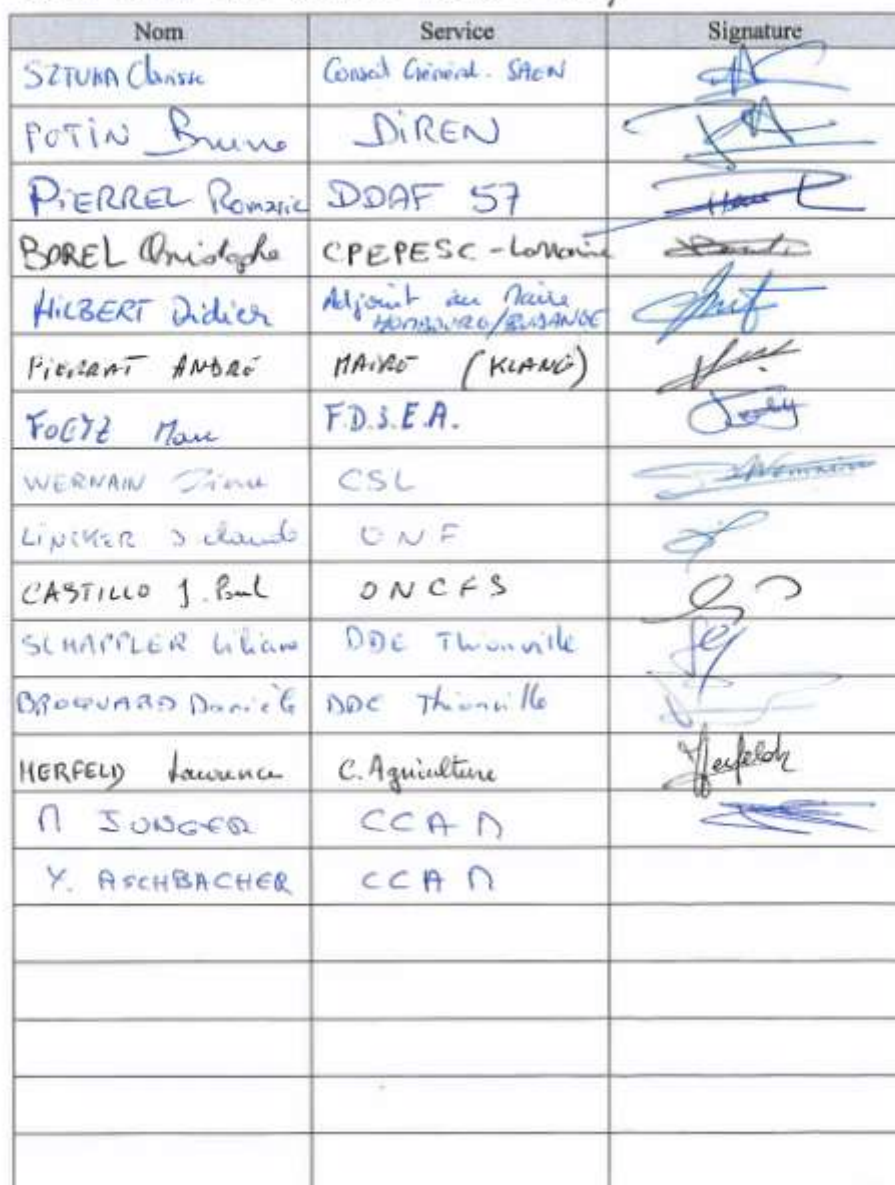 Nom Service Signature
SZTUKA Clarisse Conseil Général - SAEN
POTIN Bruno DIREN
PIERREL Romaric DDAF 57
BOREL Christophe CPEPESC - Lorraine
HILBERT Didier Adjoint au Maire
HOMBOURG/BUDANGE
PIERRAT ANDRÉ MAIRE (KLANG)
Marc F.D.S.E.A.
WERNAIN Pierre CSL
J Claude ONF
CASTILLO J. Paul ONCFS
SCHAPPLER Liliane DDE Thionville
BROQUARD Danièle DDE Thionville
HERFELD Laurence C. Agriculture Herfeld
M JUNGER CCAM
Y. ASCHBACHER CCAM